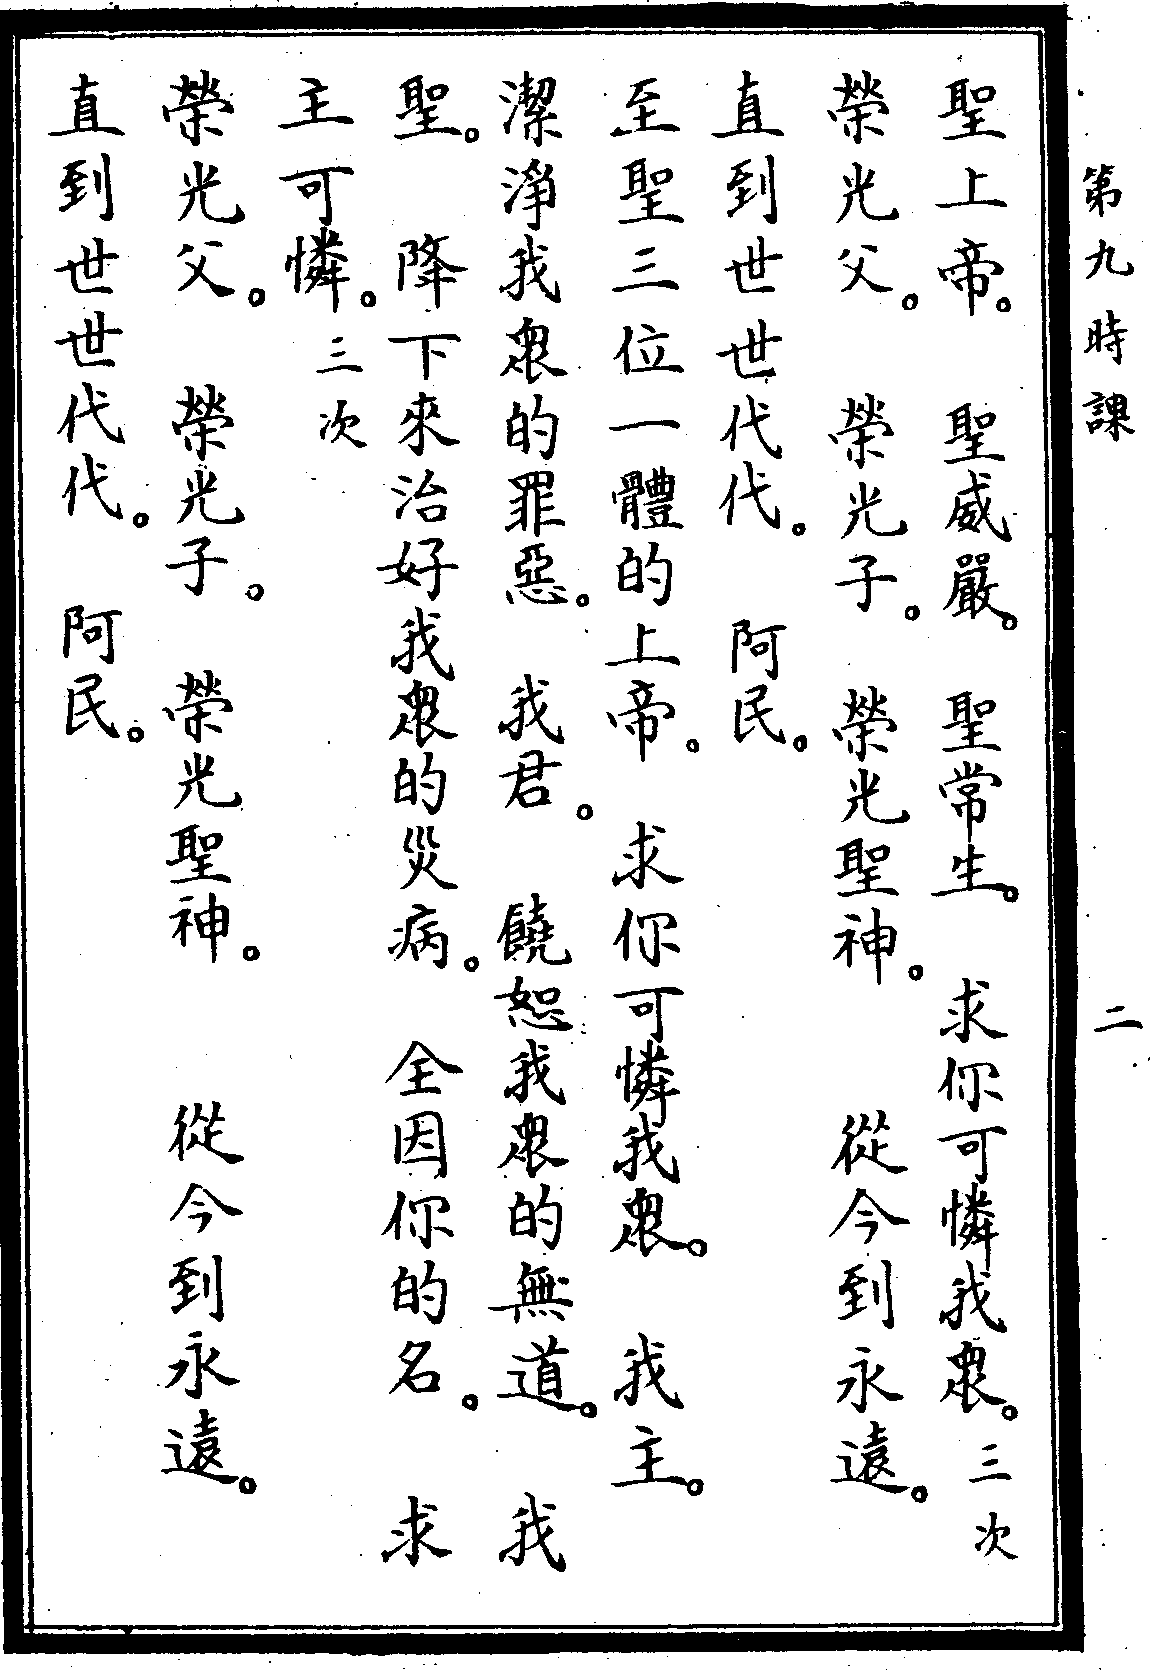 第九時課 二
聖上帝。 聖威嚴。 聖常生。 求你可憐我眾。三次
榮光父。 榮光子。 榮光聖神。 從今到永遠。
直到世世代代。 阿民。
至聖三位一體的上帝。 求你可憐我眾。 我主。
潔淨我眾的罪惡。 我君。 饒恕我眾的無道。 我
聖。 降下來治好我眾的災病。 全因你的名。 求
主可憐。三次
榮光父。 榮光子。 榮光聖神。 從今到永遠。
直到世世代代。 阿民。